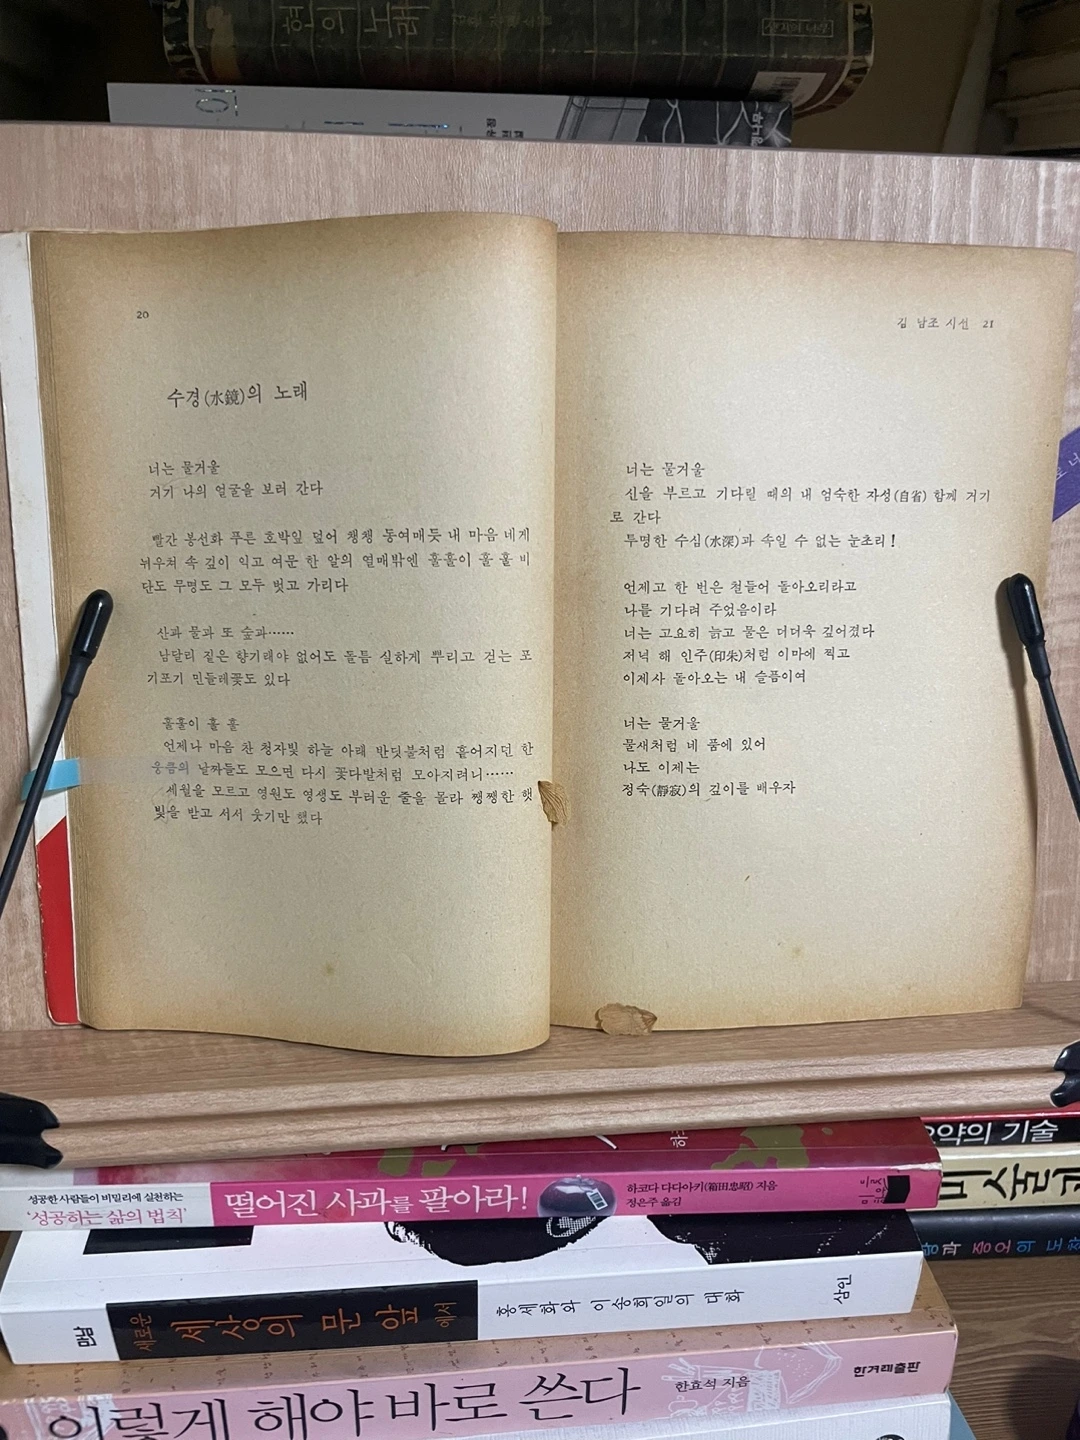 혼의 노래
20
수경(水鏡)의 노래
너는 물거울
거기 나의 얼굴을 보러 간다
빨간 봉선화 푸른 호박잎 덮어 챙챙 동여매듯 내 마음 네게
뉘우쳐 속 깊이 익고 여문 한 알의 열매밖엔 훌훌이 훌 훌 비
단도 무명도 그 모두 벗고 가리다
산과 물과 또 숲과……
남달리 짙은 향기래야 없어도 돌틈 실하게 뿌리고 걷는 포
기포기 민들레꽃도 있다
훌훌이 훌 훌
언제나 마음 찬 청자빛 하늘 아래 반딧불처럼 흩어지던 한
웅큼의 날짜들도 모으면 다시 꽃다발처럼 모아지려니……
세월을 모르고 영원도 영생도 부러운 줄을 몰라 쨍쨍한 햇
빛을 받고 서서 웃기만 했다
김 남조 시선 21
너는 물거울
신을 부르고 기다릴 때의 내 엄숙한 자성(自省) 함께 거기
로 간다
투명한 수심(水深)과 속일 수 없는 눈초리!
언제고 한 번은 철들어 돌아오리라고
나를 기다려 주었음이라
너는 고요히 늙고 물은 더더욱 깊어졌다
저녁 해 인주(印朱)처럼 이마에 찍고
이제사 돌아오는 내 슬픔이여
너는 물거울
물새처럼 네 품에 있어
나도 이제는
정숙(靜寂)의 깊이를 배우자
성공한 사람들이 비밀리에 실천하는
'성공하는 삶의 법칙'
떨어진 사과를 팔아라!
하코다 다다아키(箱田忠昭) 지음
정은주 옮김
요약의 기술
새로운 세상의 문 앞에서
홍세화와 이송희일의 대화
삼인
이렇게 해야 바로 쓴다
한효석 지음
한겨레출판